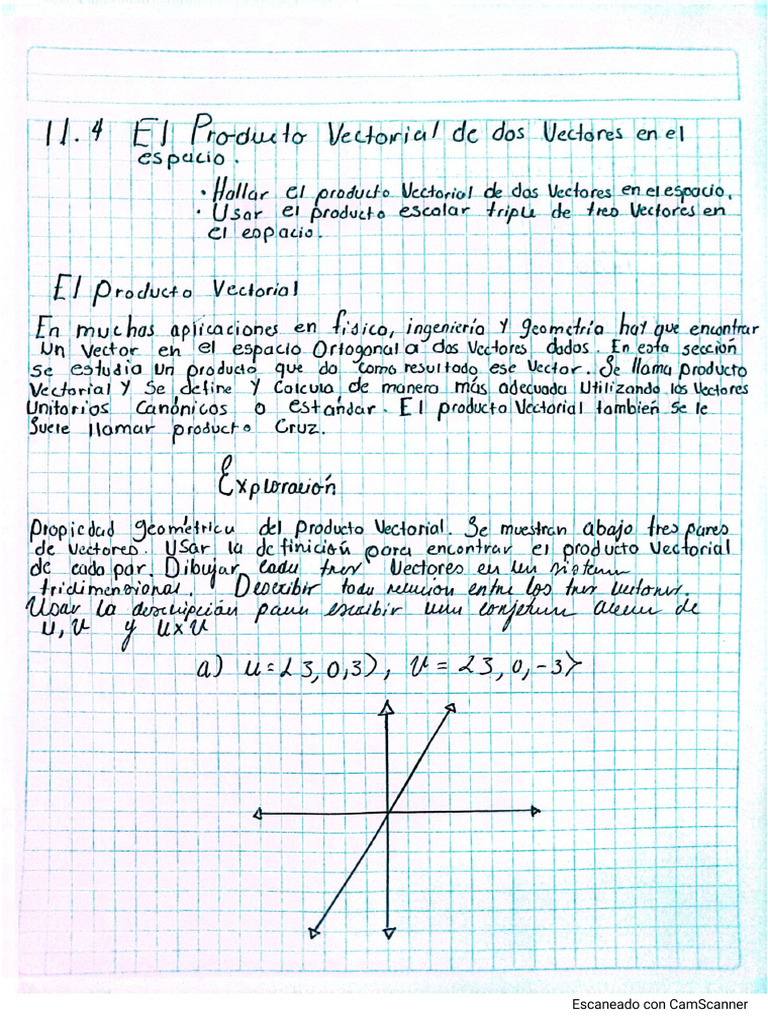 11.4 El Producto Vectorial de dos Vectores en el
espacio.
• Hallar el producto Vectorial de dos Vectores en el espacio.
• Usar el producto escalar triple de tres Vectores en
el espacio.
El producto Vectorial
En muchas aplicaciones en física, ingeniería y geometría hay que encontrar
un vector en el espacio Ortogonal a dos Vectores dados. En esta sección
se estudia un producto que da como resultado ese Vector. Se llama producto
Vectorial y se define y calcula de manera más adecuada utilizando los Vectores
Unitarios Canónicos o estándar. El producto Vectorial también se le
Suele llamar producto Cruz.
Exploración
Propiedad geométrica del producto Vectorial. Se muestran abajo tres pares
de vectores. Usar la definición para encontrar el producto Vectorial
de cada par. Dibujar cada tres Vectores en un sistema
tridimensional. Describir toda relación entre los tres vectores.
Usar la descripción para escribir una conjetura acerca de
u, v y u×v
a) u=<3,0,3), v=<3,0,-3>
Escaneado con CamScanner